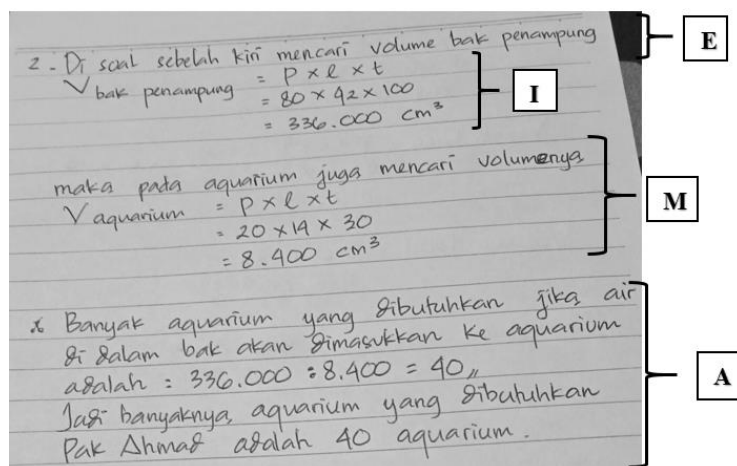 2. Di soal sebelah kiri mencari volume bak penampung
E
V bak penampung = p x l x t
= 80 x 42 x 100
I
= 336.000 cm³
maka pada aquarium juga mencari volumenya
V aquarium = p x l x t
M
= 20 x 14 x 30
= 8.400 cm³
Banyak aquarium yang dibutuhkan jika air
di dalam bak akan dimasukkan ke aquarium
adalah : 336.000 : 8.400 = 40,,
A
Jadi banyaknya aquarium yang dibutuhkan
Pak Ahmad adalah 40 aquarium.